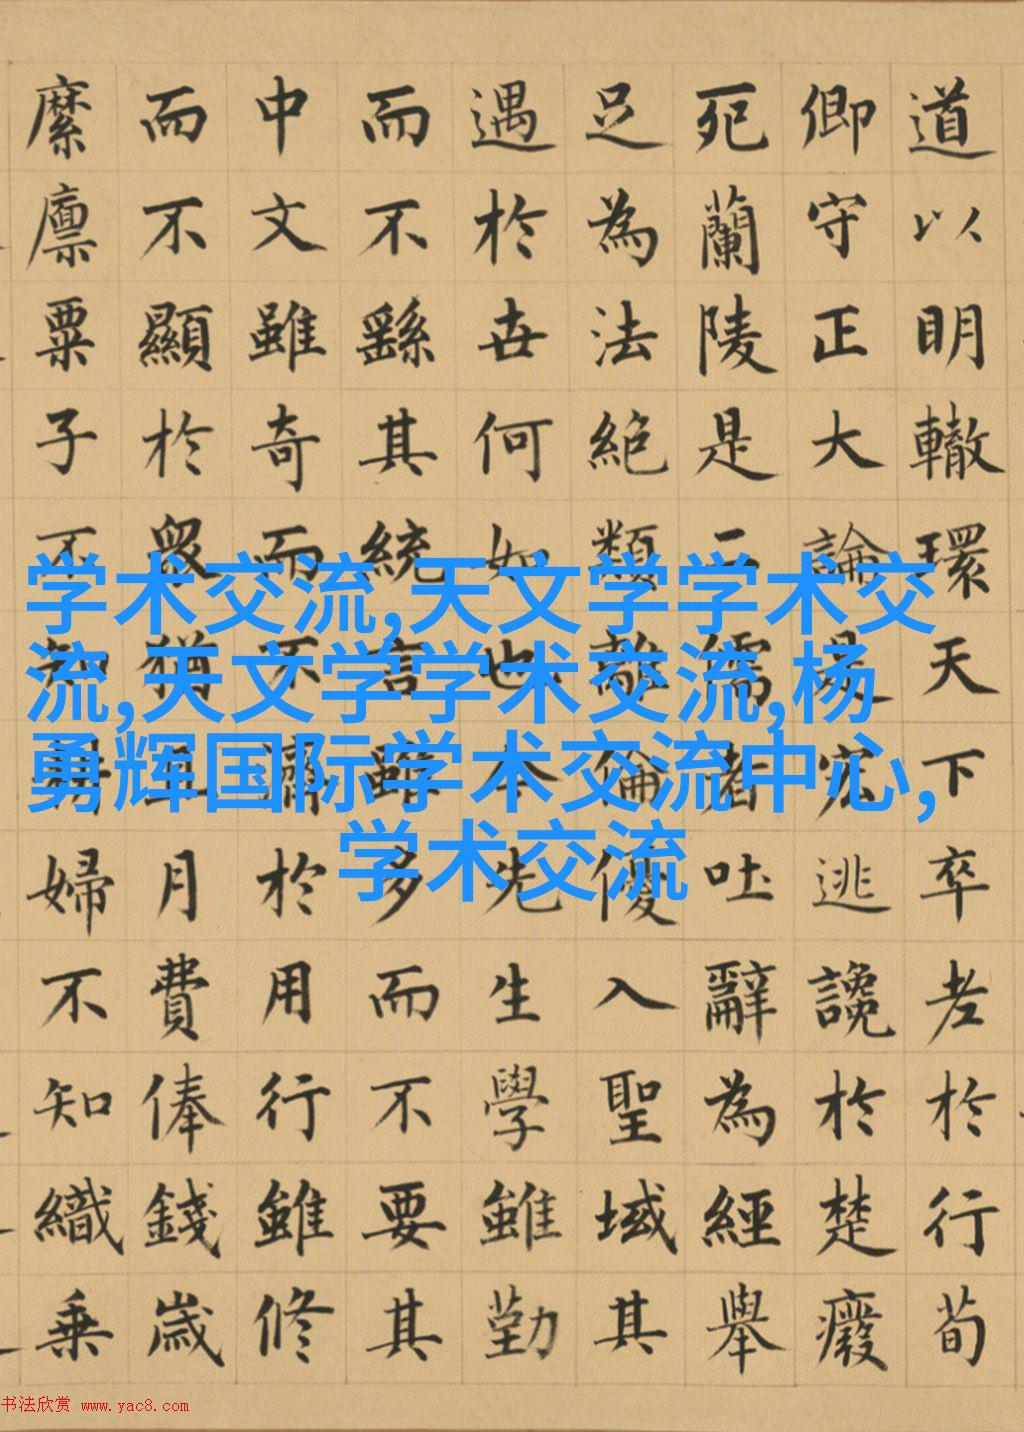 道以明轍環天下卒老於行荀
卿守正大論是宏逃讒於楚癈
死蘭陵是二儒者吐辭為經舉
足為法絕類離倫優入聖域其
遇於世何如也今先生學雖勤
而不繇其統言雖多而不要其
中文雖奇而不濟於用行雖修
而不顯於眾猶且月費俸錢歲
縻廩粟子不知耕婦不知織乘
学术交流,天文学学术交
流,天文学学术交流,杨
勇辉国际学术交流中心,
学术交流
书法欣赏 www.yac8.com